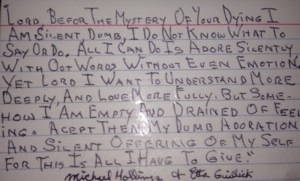 "LORD BEFOR THE MYSTERY OF YOUR DYING I
AM SILENT, DUMB, I DO NOT KNOW WHAT TO
SAY OR DO. ALL I CAN DO IS ADORE SILENTLY
WITH OUT WORDS WITHOUT EVEN EMOTION.
YET LORD I WANT TO UNDERSTAND MORE
DEEPLY, AND LOVE MORE FULLY. BUT SOME-
HOW I AM EMPTY AND DRAINED OF FEEL
ING. ACEPT THEN MY DUMB ADORATION
AND SILENT OFFERING OF MY SELF
FOR THIS IS ALL I HAVE TO GIVE."
Michael Hollings & Etta Gullick